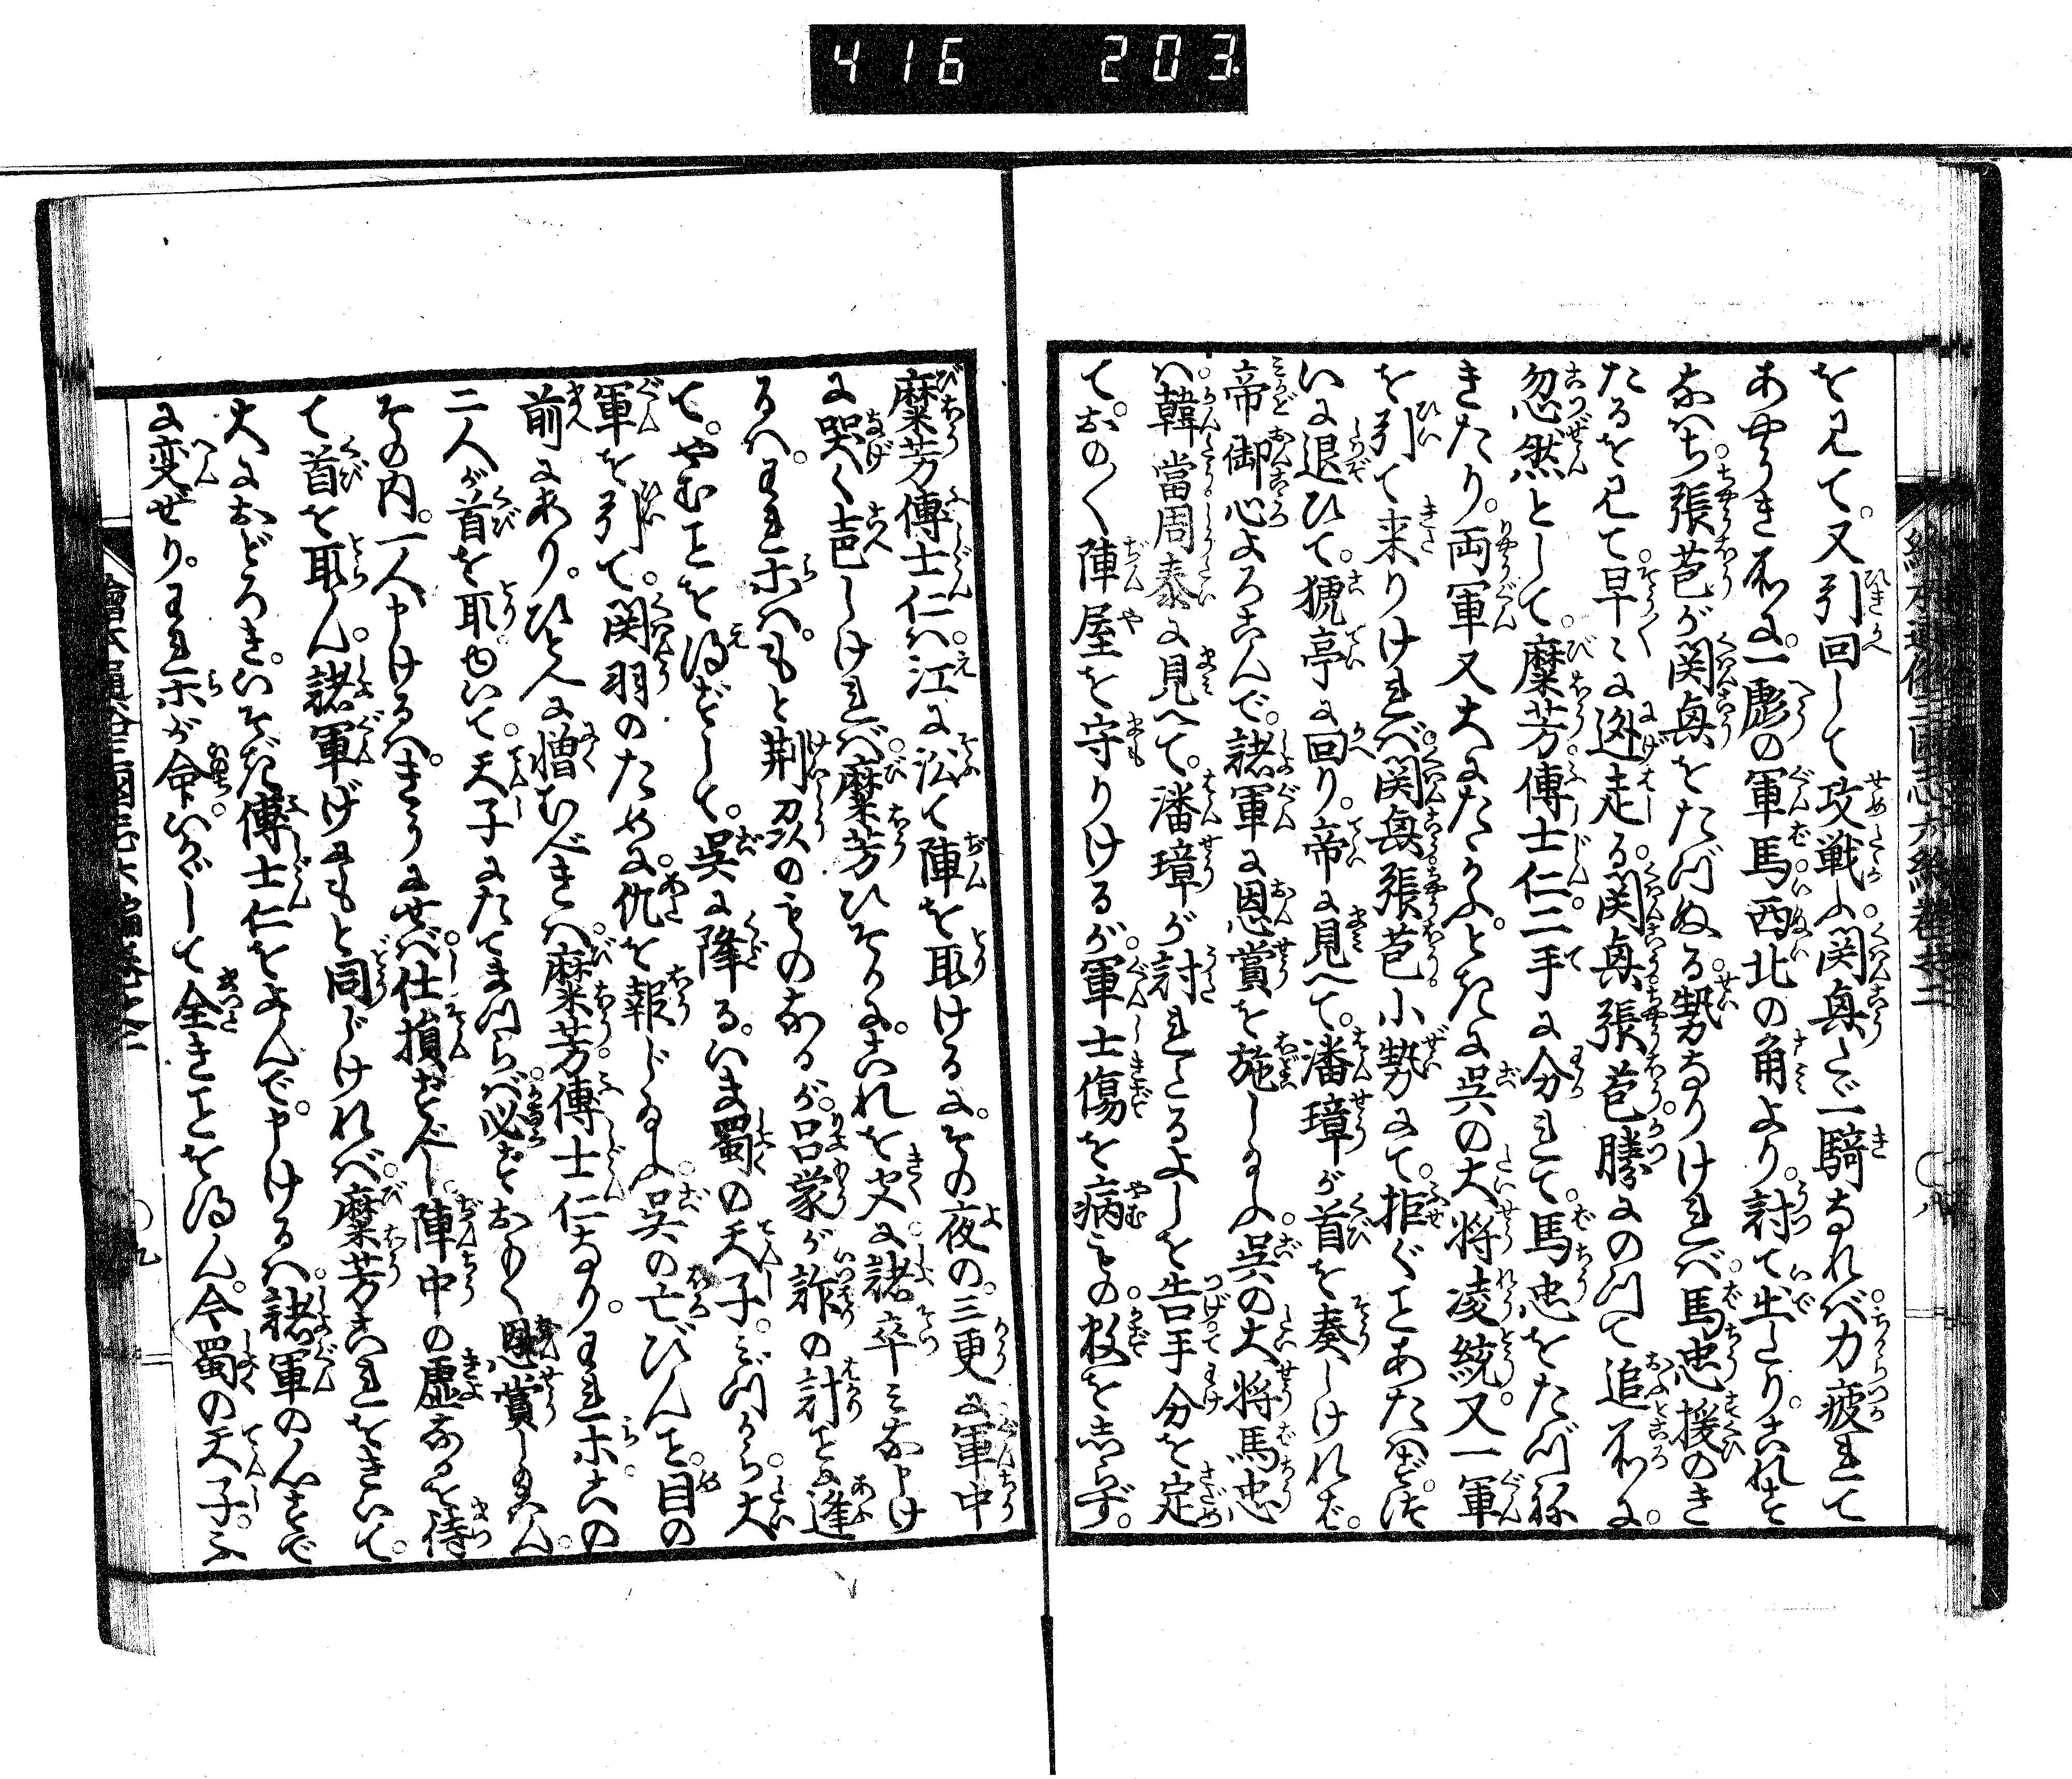 416 203
を見て。又引回して攻戦ふ。関興たゞ一騎なれバ。力疲れて
あやうき所に。一彪の軍馬。西北の角より。討て出たり。これを
すなハち。張苞が関興をたづぬる勢なりけれバ。馬忠援のき
たるを見て。早〻に迯走る。関興張苞。勝にのつて追所に。
忽然として。糜芳。傅士仁。二手に分れて。馬忠をたづね
きたり。両軍又大にたゝかふ。ときに呉の大将凌統。又一軍
を引て来りけれバ。関興張苞。小勢にて。拒ぐことあたはず。
いに退ひて。猇亭に回り。帝に見へて。潘璋が首を奏しけれバ。
帝御心よろこんで。諸軍に恩賞を施し給ふ。呉の大将馬忠
ハ。韓當周泰に見へて。潘璋が討れたるよしを告。手分を定
て。おの〳〵陣屋を守りけるが。軍士傷を病もの。数を志らず。
糜芳傅士仁ハ。江に沿て陣を取けるに。その夜の。三更に。軍中
に哭く声しけれバ。糜芳ひそかに。これを聞に。諸卒ミな申け
るハ。われ等ハ。もと荊州のものなるが。呂蒙が詐の討に逢
て。やむことを得ずして。呉に降る。いま蜀の天子。ミづから。大
軍を引て。関羽のために。仇を報じ給ふ。呉の亡びんこと。目の
前にあり。ひとへに憎むべきハ。糜芳。傅士仁なり。われ等。この
二人が首を取ゆいて。天子にたてまつらバ。必ずおもく恩賞し給ハん。
その内。一人申けるハ。きうにせバ。仕損ずべし。陣中の虚なるを待
て首を取ん。諸軍げにもと同じけれバ。糜芳これをきいて。
大におどろき。いそぎ傅士仁をよんで。申けるハ。諸軍の心すで
に変ぜり。われ等が命。いかゞして全きことを得ん。今蜀の天子。ふ